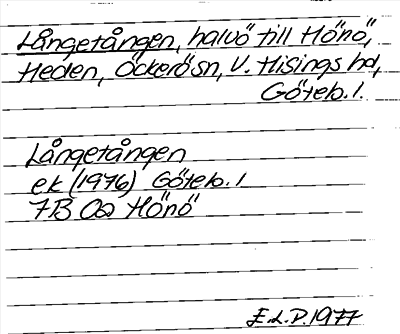 Långetången, halvö till Hönö,
Heden, Öckerö sn, V. Hisings hd,
Göteb. l.
Långetången
ek (1976) Göteb. l
7B 0a Hönö
E.L.P. 1977